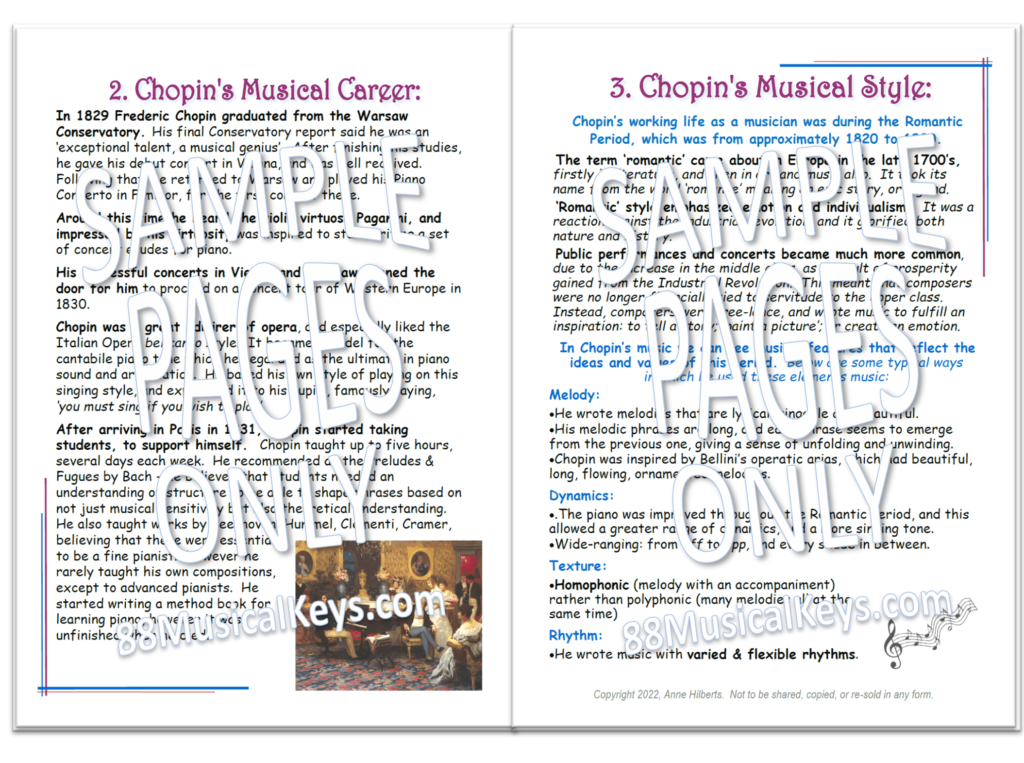 2. Chopin's Musical Career:
In 1829 Frederic Chopin graduated from the Warsaw
Conservatory. His final Conservatory report said he was an
'exceptional talent, a musical genius'. After finishing his studies,
he gave his debut concert in Vienna, and was well received.
Following that he returned to Warsaw and played his Piano
Concerto in F minor, for the first time there.
Around this time he heard the violin virtuoso Paganini, and
impressed by his virtuosity, was inspired to start writing a set
of concert etudes for piano.
His successful concerts in Vienna and Warsaw opened the
door for him to proceed on a concert tour of Western Europe in
1830.
Chopin was a great admirer of opera, and especially liked the
Italian Opera bel canto style. It became a model for the
cantabile piano tone which he regarded as the ultimate in piano
sound and articulation. He based his own style of playing on this
singing style, and expected it to his pupils, famously saying,
'you must sing if you wish to play'.
After arriving in Paris in 1831, Chopin started taking
students, to support himself. Chopin taught up to five hours,
several days each week. He recommended all the Preludes &
Fugues by Bach - he believed that students needed an
understanding of structure to be able to shape phrases based on
not just musical sensitivity but also theoretical understanding.
He also taught works by Beethoven, Hummel, Clementi, Cramer,
believing that these were essential
to be a fine pianist. However he
rarely taught his own compositions,
except to advanced pianists. He
started writing a method book for
learning piano however it was
unfinished when he died.
3. Chopin's Musical Style:
Chopin's working life as a musician was during the Romantic
Period, which was from approximately 1820 to
The term 'romantic' came about in Europe in the late 1700's,
firstly in literature, and then in art and music also. It took its
name from the word 'romance' meaning an epic story, or legend.
'Romantic' style emphasized emotion and individualism. It was a
reaction against the Industrial Revolution, and it glorified both
nature and history.
Public performances and concerts became much more common,
due to the increase in the middle class, as a result of prosperity
gained from the Industrial Revolution. This meant that composers
were no longer financially tied to servitude to the upper class.
Instead, composers were free-lance, and wrote music to fulfill an
inspiration: to tell a story; 'paint a picture'; or create an emotion.
In Chopin's music we can see musical features that reflect the
ideas and values of this period. Below are some typical ways
in which he used these elements music:
Melody:
•He wrote melodies that are lyrical, singable and beautiful.
•His melodic phrases are long, and each phrase seems to emerge
from the previous one, giving a sense of unfolding and unwinding.
•Chopin was inspired by Bellini's operatic arias, which had beautiful,
long, flowing, ornamented melodies.
Dynamics:
•.The piano was improved throughout the Romantic Period, and this
allowed a greater range of dynamics, and a more singing tone.
•Wide-ranging: from fff to ppp, and every shade in between.
Texture:
•Homophonic (melody with an accompaniment)
rather than polyphonic (many melodies all at the
same time)
Rhythm:
•He wrote music with varied & flexible rhythms.
Copyright 2022, Anne Hilberts. Not to be shared, copied, or re-sold in any form.
SAMPLE
PAGES
ONLY
88MusicalKeys.com
SAMPLE
PAGES
ONLY
88MusicalKeys.com